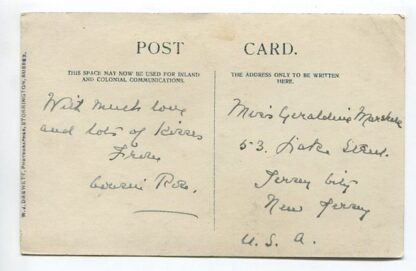 POST CARD.
THIS SPACE MAY NOW BE USED FOR INLAND
AND COLONIAL COMMUNICATIONS.
THE ADDRESS ONLY TO BE WRITTEN
HERE.
W. J. , PHOTOGRAPHER, STORRINGTON, SUSSEX.
With much love
and lots of kisses
From
Cousin
Miss Geraldine
53.
Jersey City
New Jersey
U. S. A.